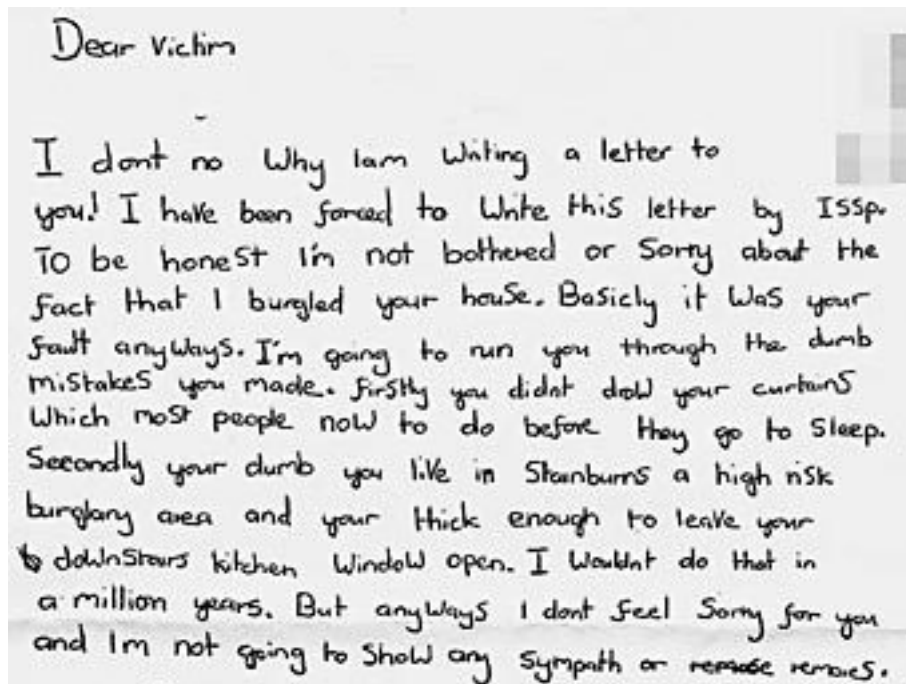 Dear Victim
I dont no Why Iam Writing a letter to
you! I have been forced to Write this letter by ISSp.
To be honest I'm not bothered or Sorry about the
fact that I burgled your house. Basicly it Was your
fault anyWays. I'm going to run you through the dumb
mistakes you made. firstly you didnt draw your curtains
Which most people now to do before they go to Sleep.
Secondly your dumb you live in Stainburns a high risk
burglary area and your thick enough to leave your
downstairs kitchen Window open. I Wouldnt do that in
a million years. But anyWays I dont feel Sorry for you
and I'm not going to Show any Sympath or remores.